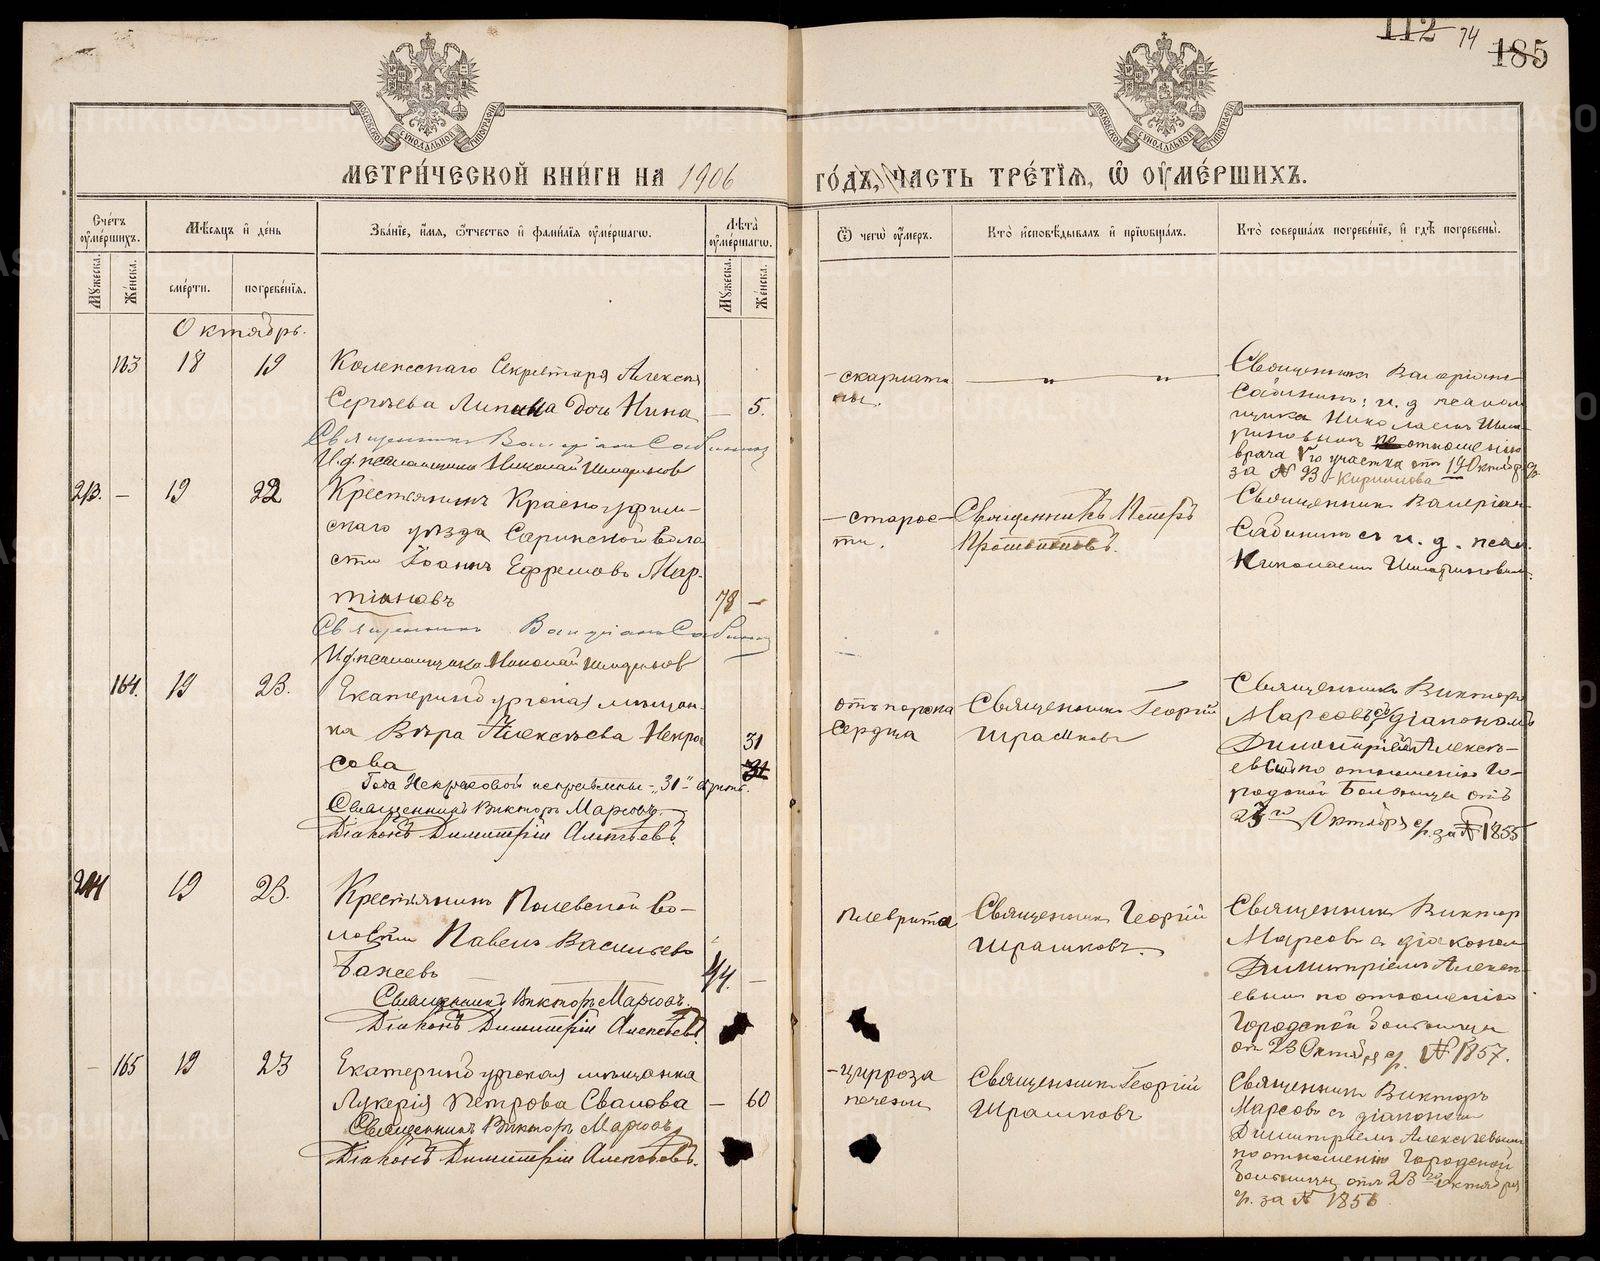 112 74 185
МЕТРИЧЕСКОЙ КНИГИ НА 1906
ГОДЪ, ЧАСТЬ ТРЕТІЯ, Ѡ ОУМЕРШИХЪ.
Счетъ оумершихъ.
Мѣсяцъ и день
Званіе, имя, отчество и фамилія оумершагѡ.
Лѣта оумершагѡ.
Ѿ чегѡ оумеръ.
Кто исповѣдывалъ и пріѡбщалъ.
Кто совершалъ погребеніе, и гдѣ погребены.
Мужеска.
Женска.
смерти.
погребенія.
Мужеска.
Женска.
Октябрь.
163 18 19
Коллежскаго Секретаря Алексѣя
Сергѣева Липина дочь Нина — 5.
Священникъ Валеріанъ Сабининъ
И.д. псаломщика Николай
— скарлати
ны.
— „ — „ —
Священникъ Валеріанъ
Сабининъ; и. д. псалом
щика Николаемъ
по отношенію
врача го участка отъ 19 Октября
за № 93
213. — 19 22
Крестьянинъ Красноуфим-
скаго уѣзда Саринской воло
сти Іоаннъ Ефремовъ Мар-
тіановъ 78 —
Священникъ Валеріанъ Сабининъ
И.д. псаломщика Николай
— старос-
ти.
Священникъ Петръ
Священникъ Валеріанъ
Сабининъ съ и. д. псал.
Николаемъ
164. 19 23.
Екатеринбургская мѣщан-
ка Вѣра Алексѣева Некра
сова 31
31
Года Некрасовой исправлены - „31"
Священникъ Викторъ Марсовъ.
Діаконъ Димитрій Алексѣевъ.
отъ порока
сердца
Священникъ Георгій
Шрамковъ
Священникъ Викторъ
Марсовъ съ діакономъ
Димитріемъ Алексѣ-
евымъ по отношенію Го-
родской Больницы отъ
23го Октября с/г. за № 1855
214 19 23.
Крестьянинъ Полевской во-
лости Павелъ Васильевъ
44. —
Священникъ Викторъ Марсовъ.
Діаконъ Димитрій Алексѣевъ.
плеврита
Священникъ Георгій
Шрамковъ.
Священникъ Викторъ
Марсовъ съ діакономъ
Димитріемъ Алексѣ-
евымъ по отношенію
Городской больницы
отъ 23 Октября с/г. № 1857.
— 165 19 23
Екатеринбургская мѣщанка
Лукерія Петрова — 60
Священникъ Викторъ Марсовъ
Діаконъ Димитрій Алексѣевъ.
— цирроза
печени
Священникъ Георгій
Шрамковъ
Священникъ Викторъ
Марсовъ съ діакономъ
Димитріемъ Алексѣевымъ
по отношенію Городской
больницы отъ 23го Октября
с/г. за № 1856
METRIKI.GASO-URAL.RU